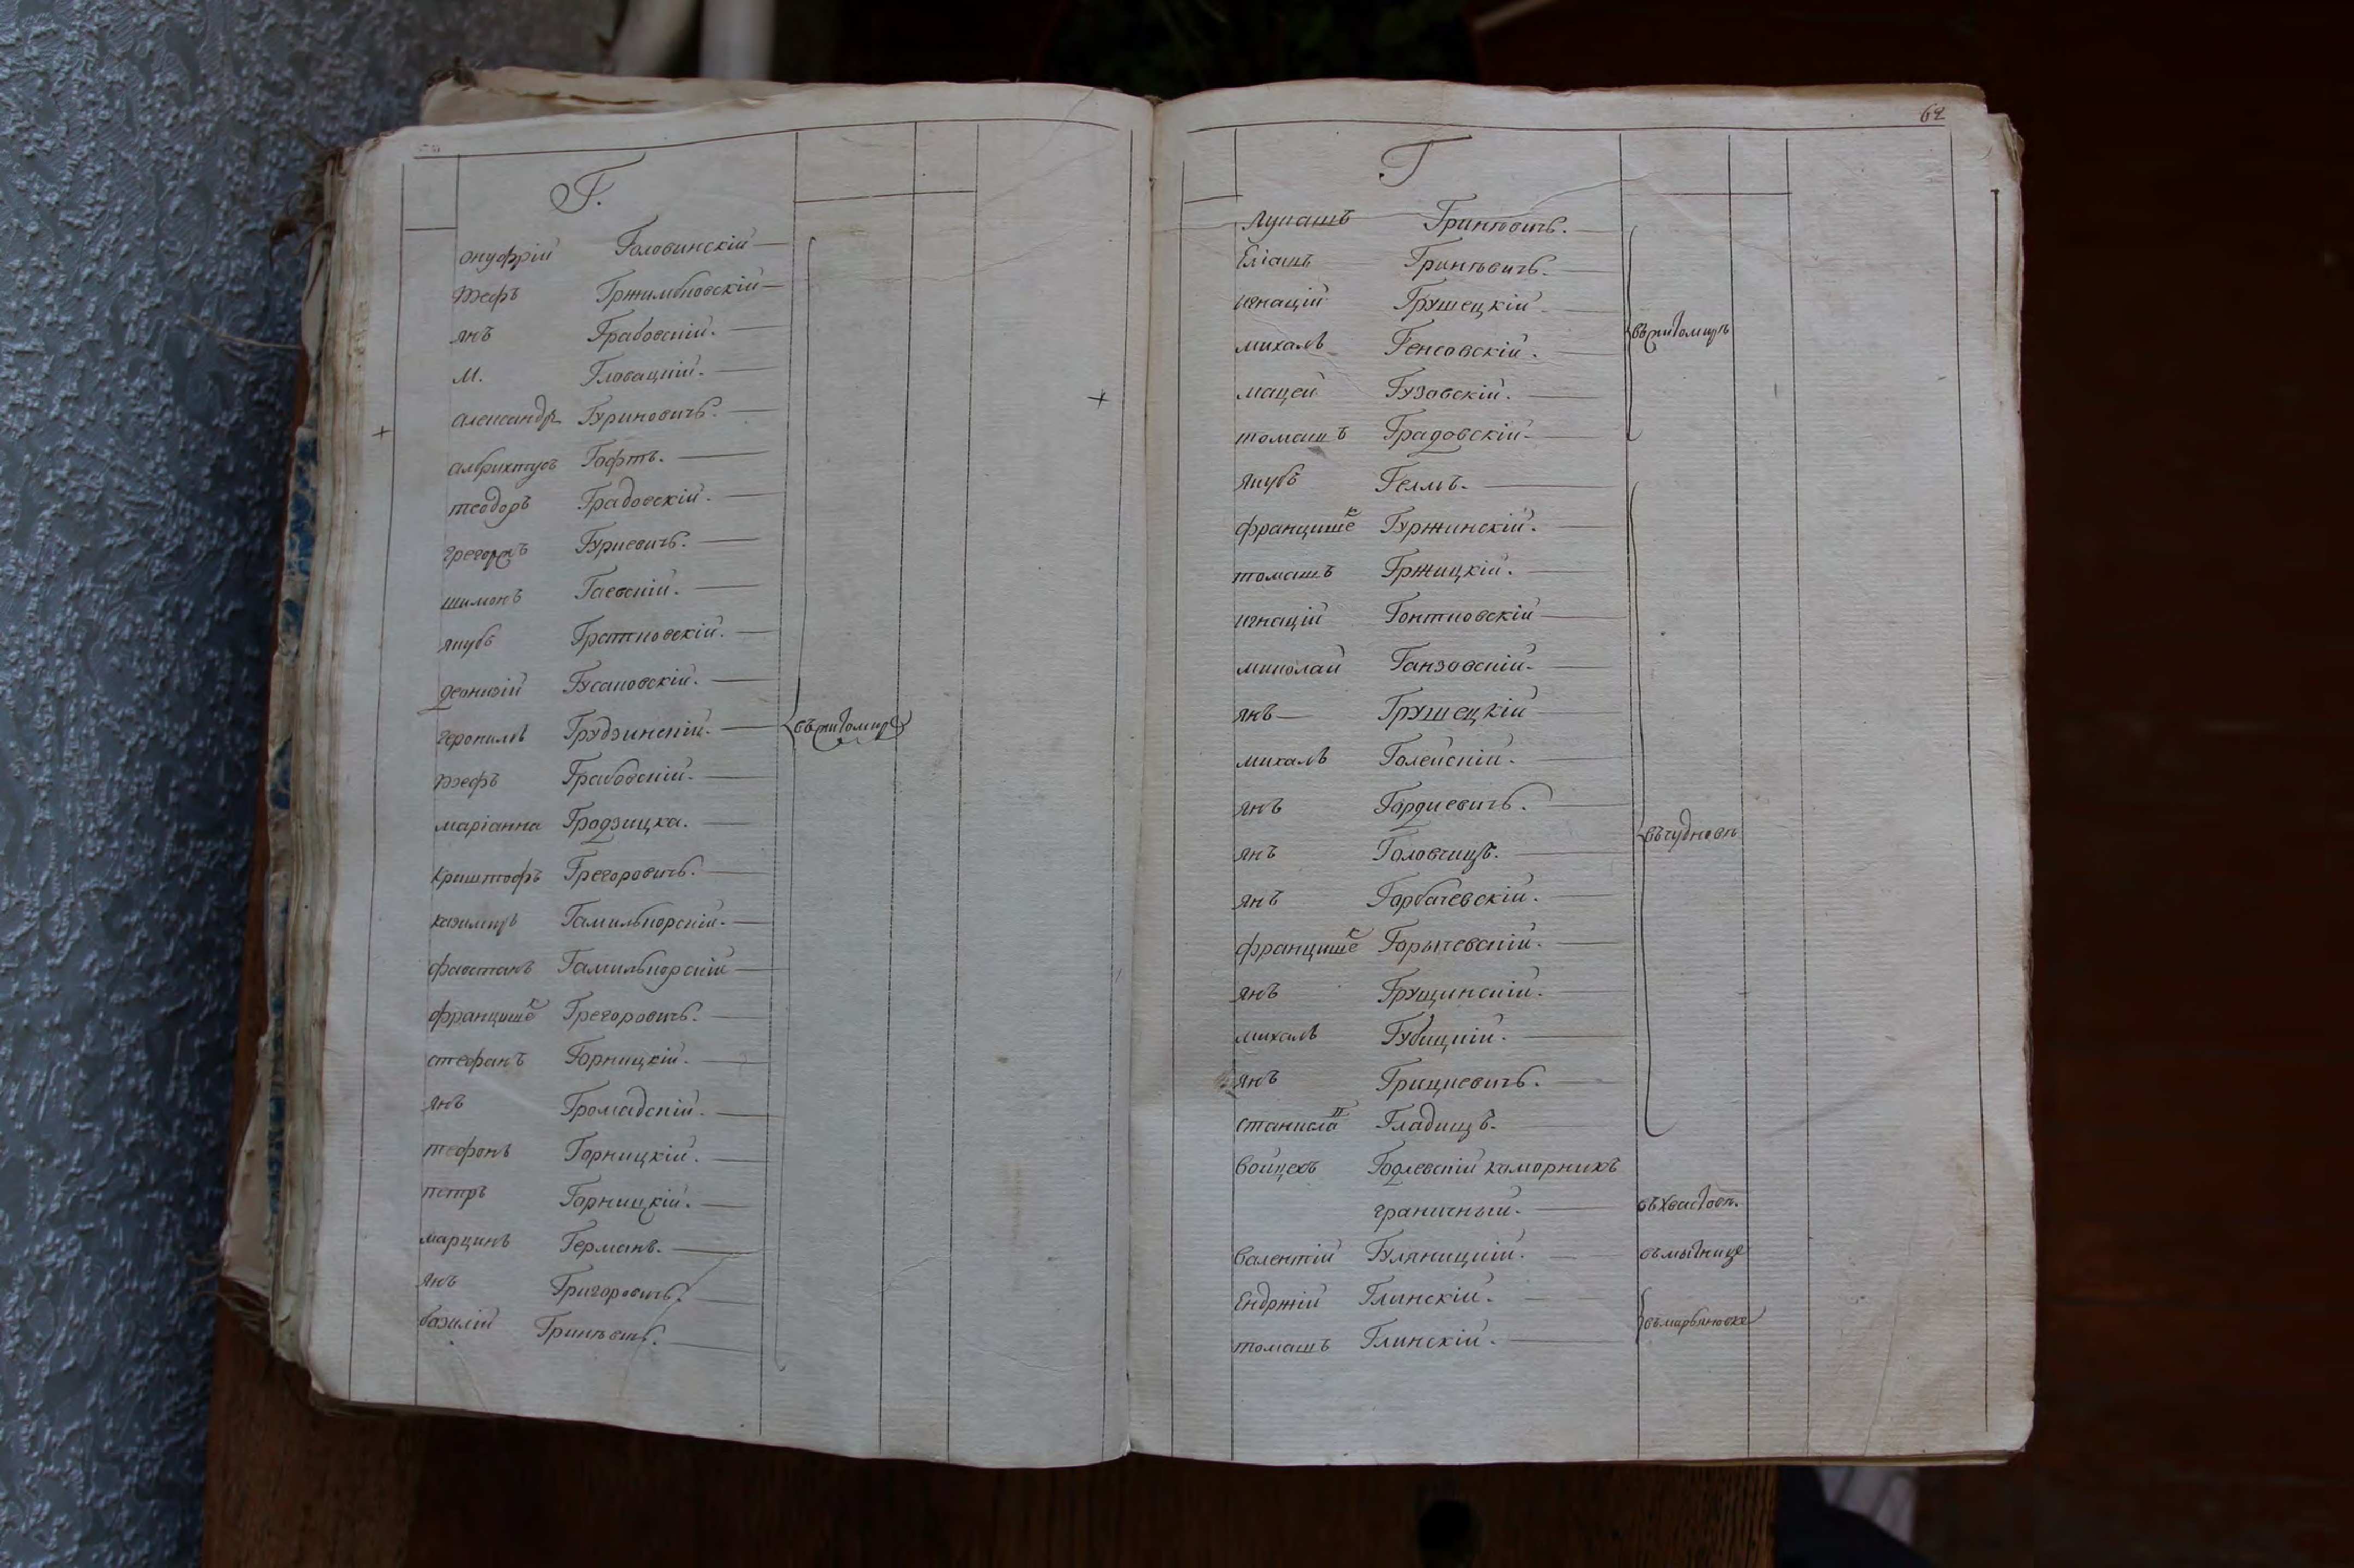 Г.
онуфрій Головинскій
Іозефъ Гржимбковскій
янъ Грабовскій.
М. Гловацкій.
александръ Гуриновичъ.
албрихтусъ Гофтъ.
теодоръ Градовскій.
грегоръ Гуриевичъ.
шимонъ Гаевскій.
якубъ Гратковскій.
деонизій Гусаковскій.
геронимъ Грудзинскій.
въ житомирѣ
Іозефъ Грабовскій.
маріанна Гродзицка.
криштофъ Грегоровичъ.
казимиръ Гамилькорскій.
фавстанъ Гамилькорскій
францишекъ Грегоровичъ.
стефанъ Горницкій.
янъ Громадскій.
теофонъ Горницкій.
петръ Горницкій.
марцинъ Германъ.
янъ Григоровичъ.
базилій Гриневичъ.
62
Г
Лукашъ Гринкевичъ.
Еліашъ Гриневичъ.
игнацій Грушецкій
михалъ Генсовскій.
въ житомирѣ
мацей Гузовскій.
томашъ Градовскій.
якубъ Гелмъ.
францишекъ Гуржинскій.
томашъ Гржицкій.
игнацій Гонтковскій
миколай Ганзовскій.
янъ Грушецкій
михалъ Голейскій.
янъ Гордиевичъ.
въ чудновѣ
янъ Головчицъ.
янъ Горбачевскій.
францишекъ Горычевскій.
янъ Грущинскій.
михалъ Губицкій.
янъ Грициевичъ.
станислав Гладищъ.
войцехъ Годлевскій каморникъ
граничный. въ хвастовѣ.
валентій Гуляницкій.
Ендржій Глинскій.
въ марьяновкѣ
томашъ Глинскій.